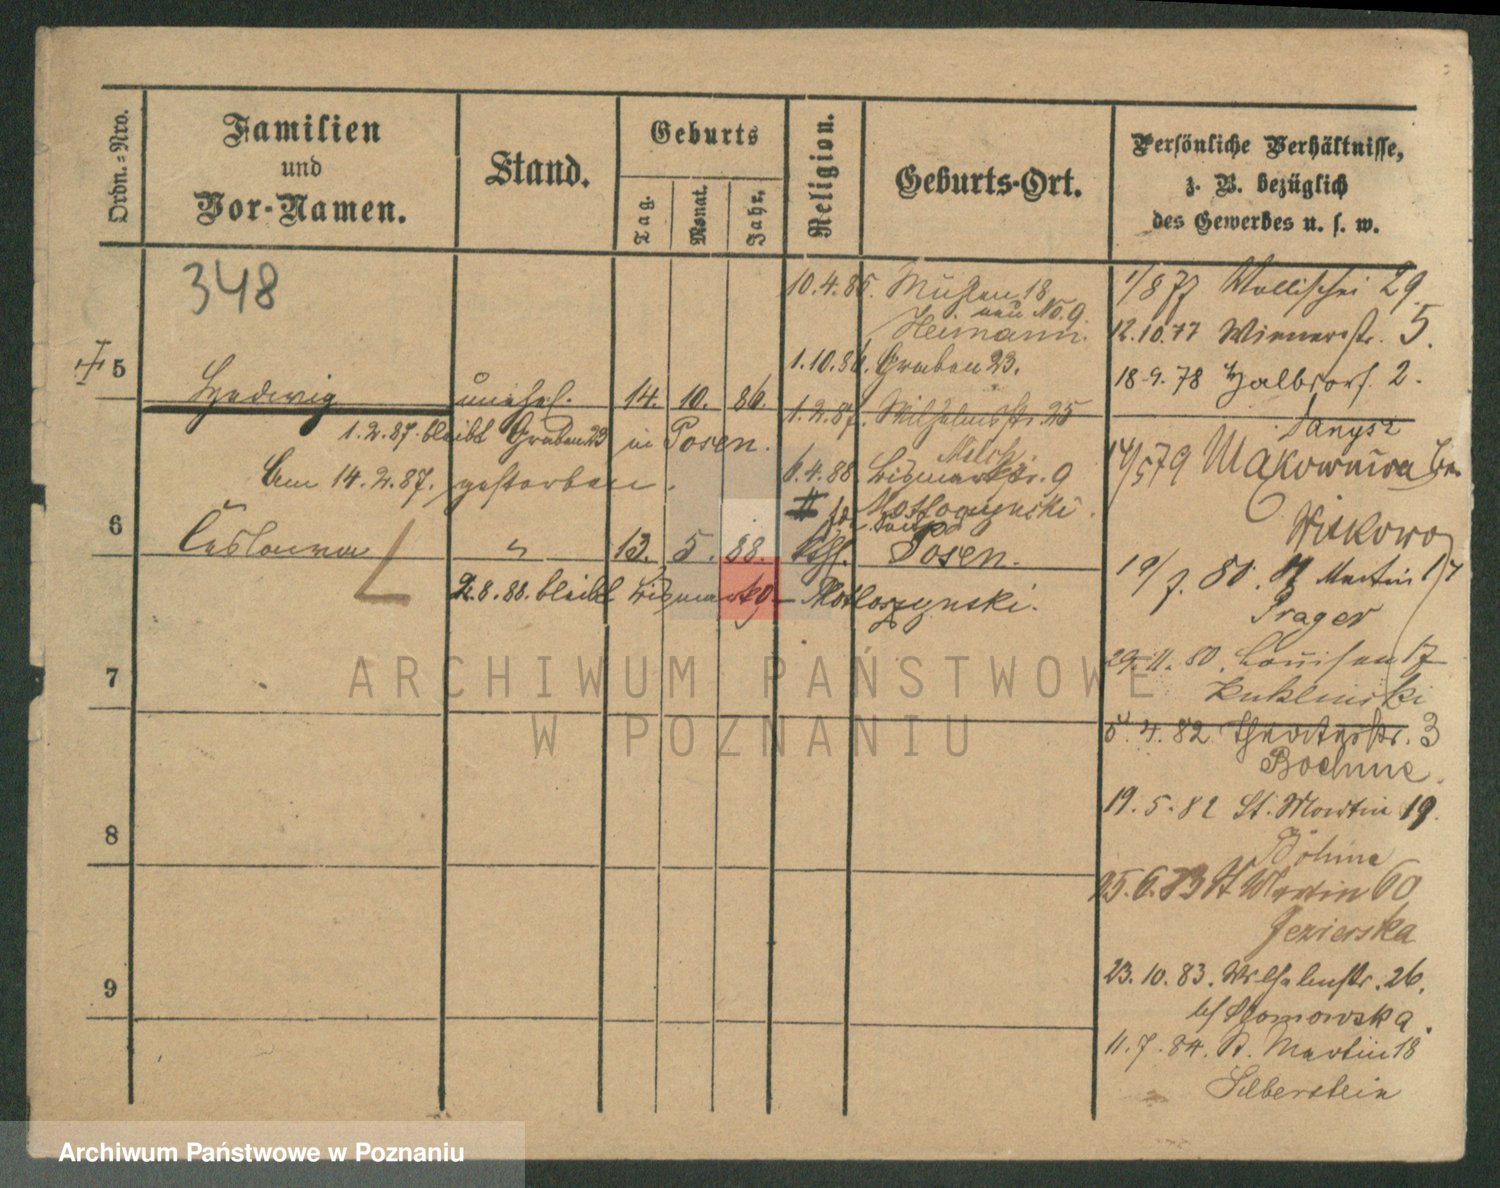 Ordn.=Nro.
Familien
und
Vor-Namen.
Stand.
Geburts
Tag.
Monat.
Jahr.
Religion.
Geburts-Ort.
Persönliche Verhältnisse,
z. B. bezüglich
des Gewerbes u. s. w.
348
10.4.85. Mühlen 18
neu No. 9.
Heimann.
1.10.86. Graben 23.
5 Hedwig unehel. 14. 10. 86.
1.2.87. Wilhelmsstr. 25
1.2.87. bleibt Graben 23 in Posen.
Am 14.2.87. gestorben.
6.4.88. Bismarckstr. 9
6 Česlawa 13. 5. 88. kath. Posen.
2.8.88. bleibt Bismark 9.
7
8
9
1/8 77 Wallischei 29.
12.10.77 Wienerstr. 5.
18.9.78 Halbdorf. 2.
14/5 79
Witkowo
19/ 80. St Martin 17
Prager
29.11.80. Louisen 17
Kuklinski
5.4.82 Theaterstr. 3
Boehme.
19.5.82 St. Martin 19.
Böhme
25.6.83 St Martin 60
Jezierska
23.10.83. Wilhelmstr. 26.
11.7.84. St. Martin 18
Silberstein
ARCHIWUM PAŃSTWOWE
W POZNANIU
Archiwum Państwowe w Poznaniu